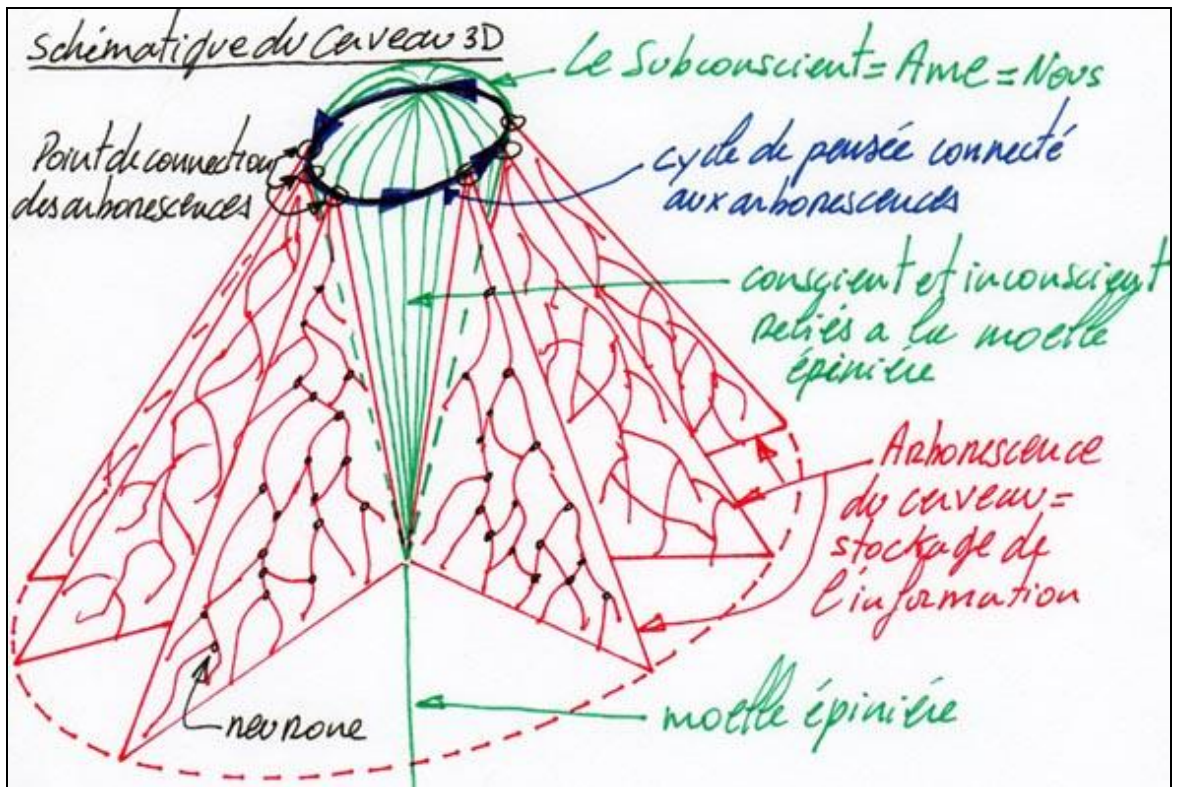 Schématique du Cerveau 3D
Le Subconscient = Ame = Nous
Point de connection
des arborescences
cycle de pensée connecté
aux arborescences
conscient et inconscient
reliés a la moelle
épinière
Arborescence
du cerveau =
stockage de
l'information
neurone
moelle épinière